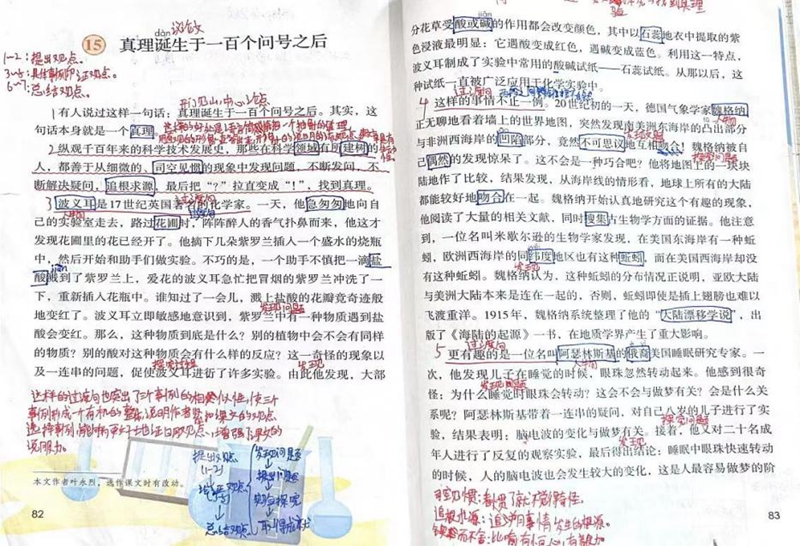 dàn
15 真理诞生于一百个问号之后
1-2：提出观点。
3-5：具体事例论证观点。
6-7：总结观点。
开门见山，中心论点
1 有人说过这样一句话：真理诞生于一百个问号之后。其实，这
句话本身就是一个真理。
2 纵观千百年来的科学技术发展史，那些在科学领域有所建树的
人，都善于从细微的、司空见惯的现象中发现问题，不断发问，不
断解决疑问，追根求源，最后把“？”拉直变成“！”，找到真理。
过渡句
3 波义耳是17世纪英国著名的化学家。一天，他急匆匆地向自
己的实验室走去，路过花圃时，阵阵醉人的香气扑鼻而来，他这才
发现花圃里的花已经开了。他摘下几朵紫罗兰插入一个盛水的烧瓶
中，然后开始和助手们做实验。不巧的是，一个助手不慎把一滴盐
酸溅到了紫罗兰上，爱花的波义耳急忙把冒烟的紫罗兰冲洗了一
下，重新插入花瓶中。谁知过了一会儿，溅上盐酸的花瓣竟奇迹般
地变红了。波义耳立即敏感地意识到，紫罗兰中有一种物质遇到盐
发现问题
酸会变红。那么，这种物质到底是什么？别的植物中会不会有同样
的物质？别的酸对这种物质会有什么样的反应？这一奇怪的现象以
及一连串的问题，促使波义耳进行了许多实验。由此他发现，大部
发现
这样的过渡句也突出了三个事例的相似性，使三个
事例形成一个有机的整体，说明作者
说服力。
提出观点
(1-2)
总结观点
发现问题
实验探究
本文作者叶永烈，选作课文时有改动。
82
分花草受酸或碱的作用都会改变颜色，其中以石蕊地衣中提取的紫
色浸液最明显：它遇酸变成红色，遇碱变成蓝色。利用这一特点，
波义耳制成了实验中常用的酸碱试纸——石蕊试纸。从那以后，这
种试纸一直被广泛应用于化学实验中。
过渡句
4 这样的事情不止一例。20世纪初的一天，德国气象学家魏格纳
正无聊地看着墙上的世界地图，突然发现南美洲东海岸的凸出部分
与非洲西海岸的凹陷部分，竟然不可思议地互相吻合！魏格纳被自
己偶然的发现惊呆了。这不会是一种巧合吧？他将地图上的一块块
陆地作了比较，结果发现，从海岸线的情形看，地球上所有的大陆
都能较好地吻合在一起。魏格纳开始认真地研究这个有趣的现象，
他阅读了大量的相关文献，同时搜集古生物学方面的证据。他注意
到，一位名叫米歇尔逊的生物学家发现，在美国东海岸有一种蚯
蚓，欧洲西海岸的同纬度地区也有这种蚯蚓，而在美国西海岸却没
发现
有这种蚯蚓。魏格纳认为，这种蚯蚓的分布情况正说明，亚欧大陆
与美洲大陆本来是连在一起的，否则，蚯蚓即使是插上翅膀也难以
飞渡重洋。1915年，魏格纳系统整理了他的“大陆漂移学说”，出
版了《海陆的起源》一书，在地质学界产生了重大影响。
过渡句
5 更有趣的是一位名叫阿瑟林斯基的俄裔美国睡眠研究专家。一
人物
次，他发现儿子在睡觉的时候，眼珠忽然转动起来。他感到很奇
发现问题
怪：为什么睡觉时眼珠会转动？这会不会与做梦有关？会是什么关
系呢？阿瑟林斯基带着一连串的疑问，对自己八岁的儿子进行了实
验，结果表明：脑电波的变化与做梦有关。接着，他又对二十名成
发现
年人进行了反复的观察实验，最后得出结论：睡眠中眼珠快速转动
的时候，人的脑电波也会发生较大的变化，这是人最容易做梦的阶
司空见惯：看惯了就不觉得奇怪。
追根求源：追究事情发生的根源。
锲而不舍：比喻有恒心，有毅力
83